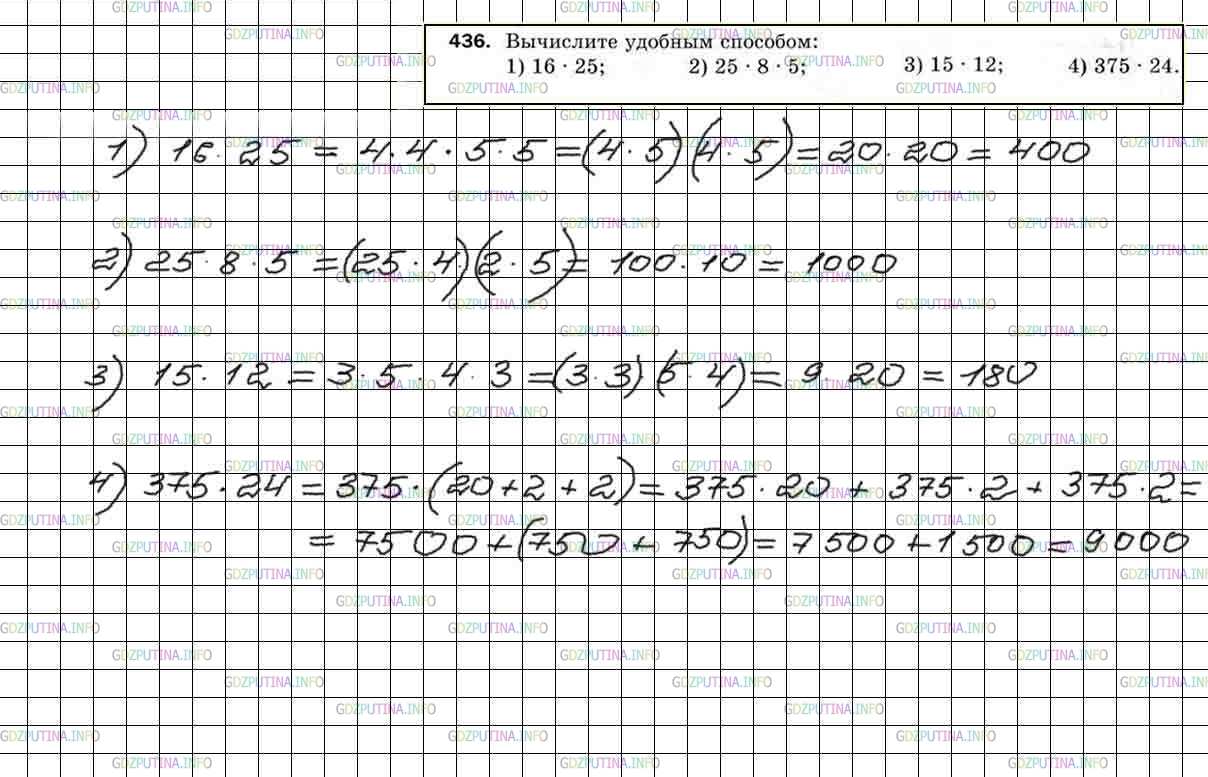 436. Вычислите удобным способом:
1) 16 · 25; 2) 25 · 8 · 5; 3) 15 · 12; 4) 375 · 24.
1) 16 · 25 = 4 · 4 · 5 · 5 = (4 · 5)(4 · 5) = 20 · 20 = 400
2) 25 · 8 · 5 = (25 · 4)(2 · 5) = 100 · 10 = 1000
3) 15 · 12 = 3 · 5 · 4 · 3 = (3 · 3) · (5 · 4) = 9 · 20 = 180
4) 375 · 24 = 375 · (20 + 2 + 2) = 375 · 20 + 375 · 2 + 375 · 2 =
= 7500 + (750 + 750) = 7500 + 1500 = 9000
GDZPUTINA.INFO